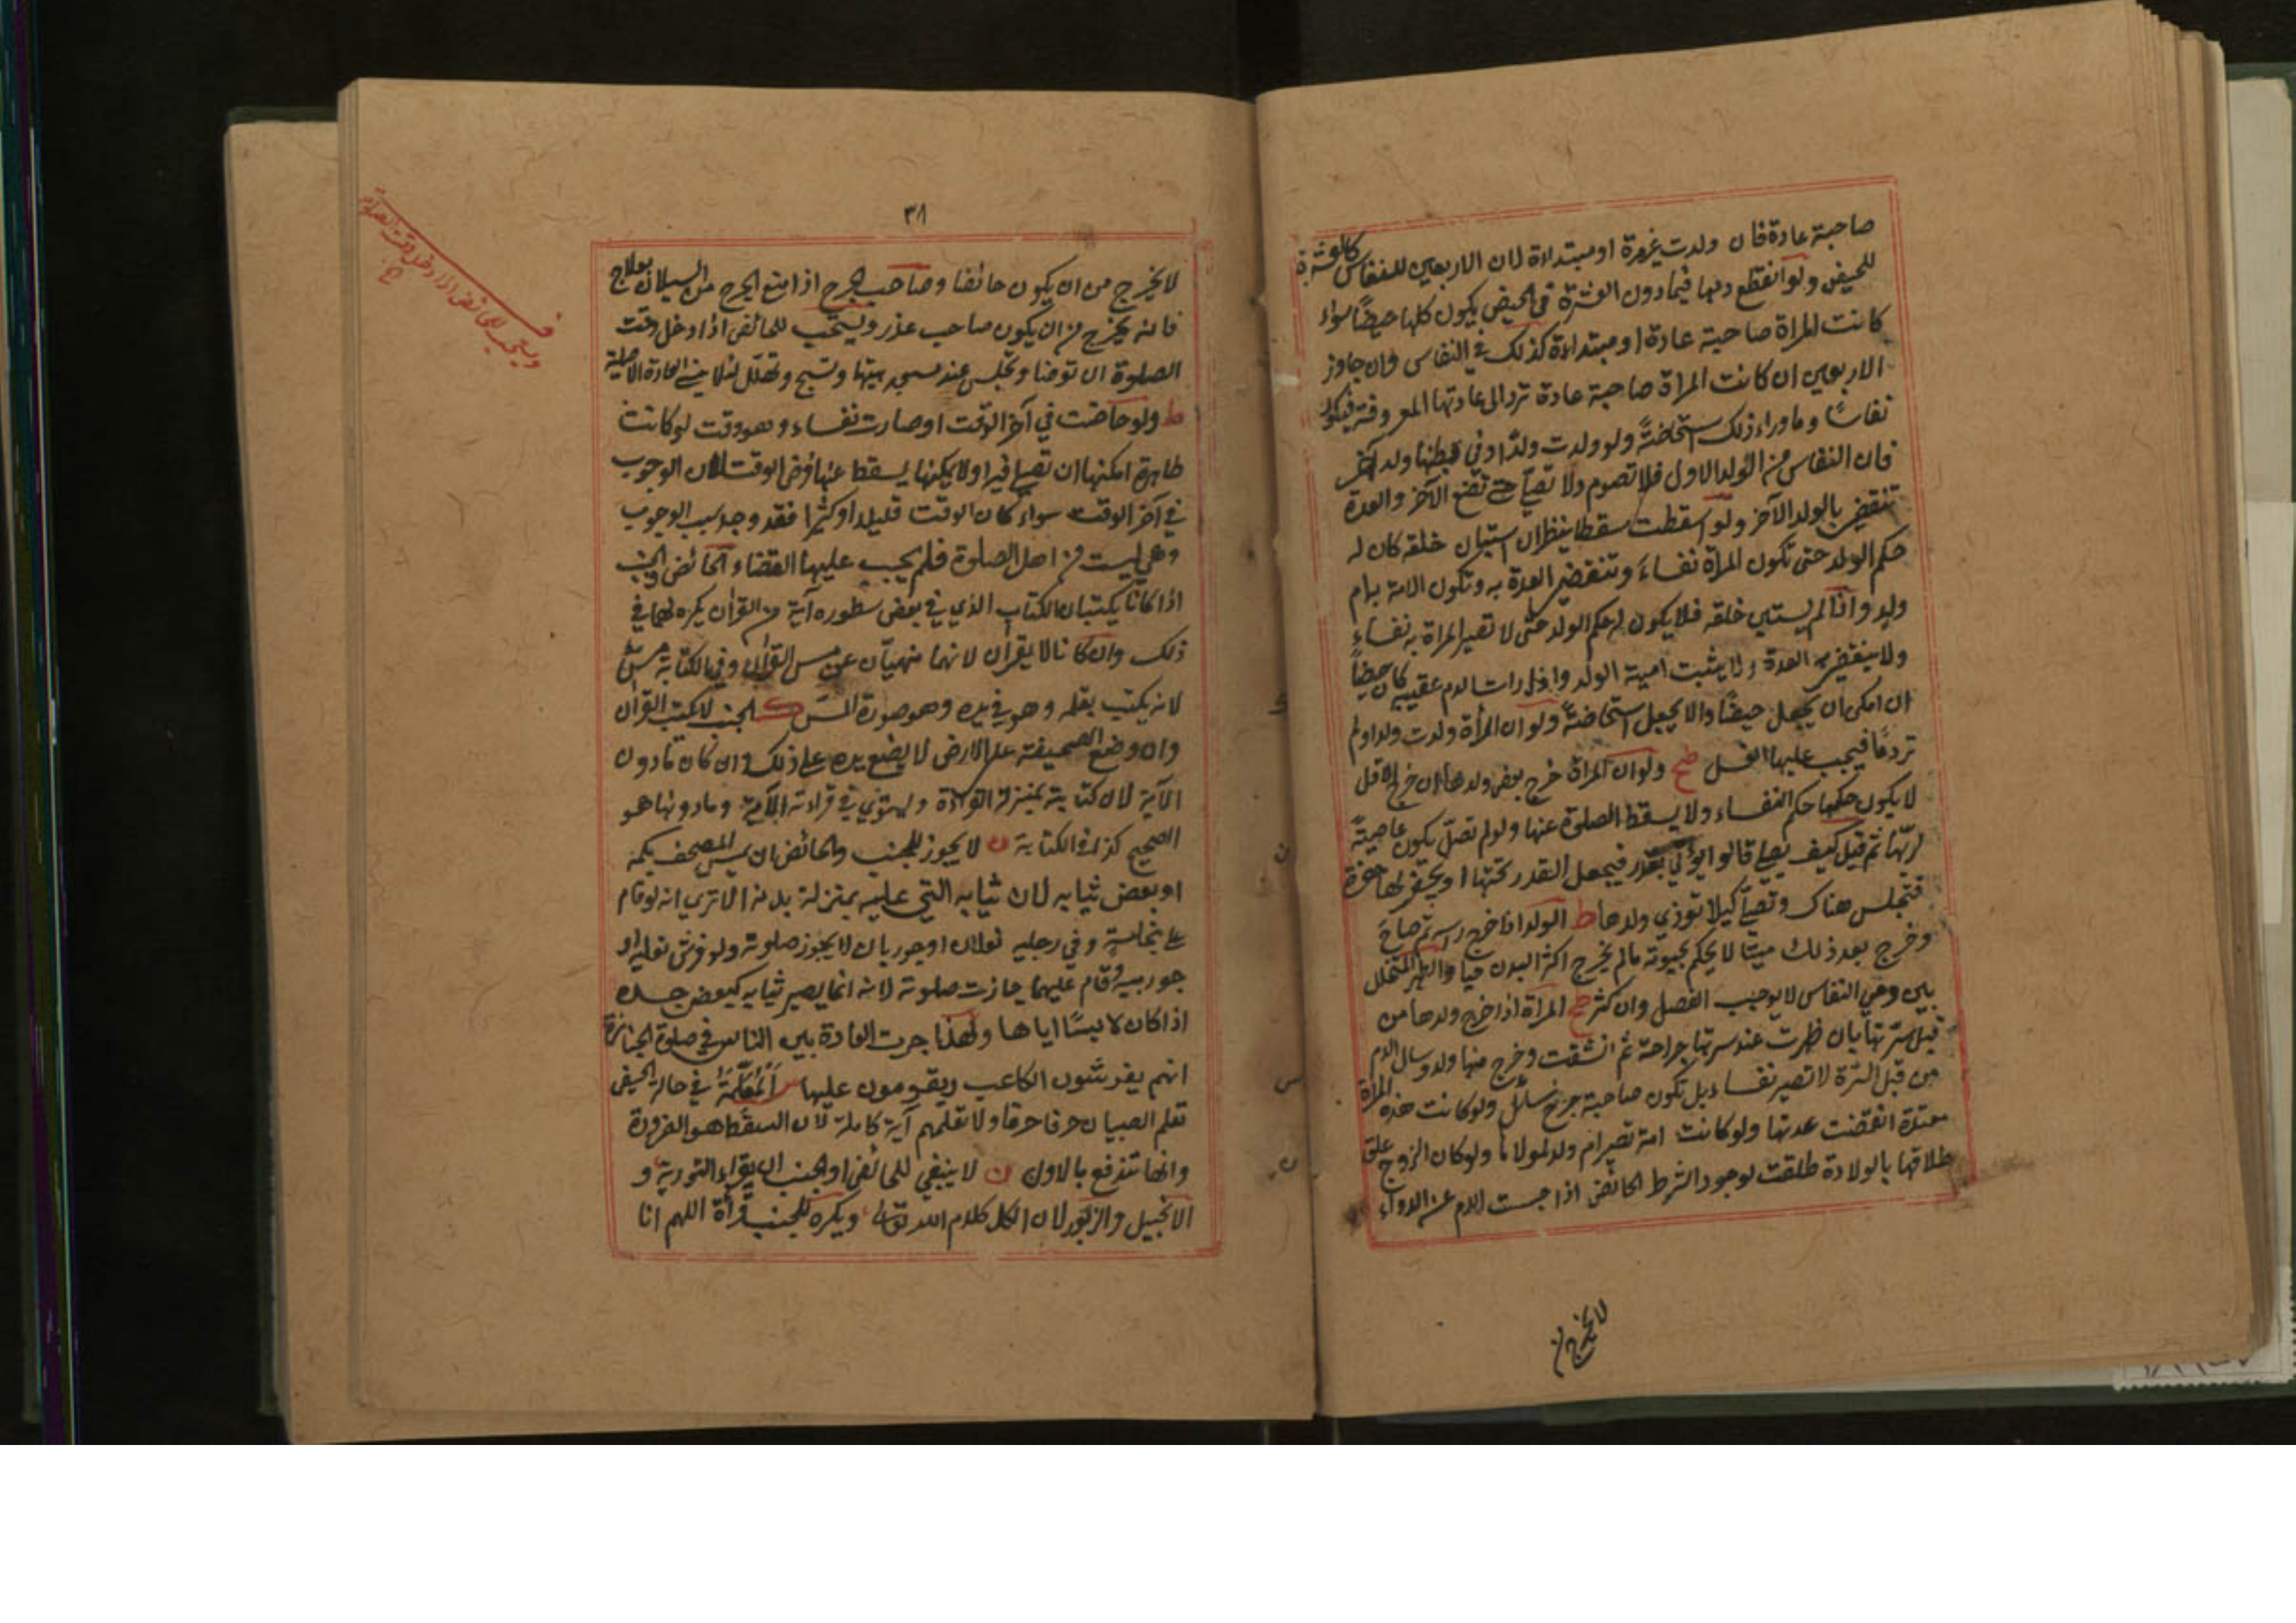 صاحبة عادة فان ولدت غيرمرة او مبتداءة لان الاربعين للنفاس كالعشرة
للحيض ولو انقطع دمها فيما دون العشرة في الحيض يكون كلها حيضاً سواء
كانت المراة صاحبة عادة او مبتداءة كذلك في النفاس وان جاوز
الاربعين ان كانت المراة صاحبة عادة ترد الى عادتها المعروفة فيكون
نفاسًا وماوراء ذلك استحاضةً ولو ولدت ولدًا وفي بطنها ولد آخر
فان النفاس من الولد الاول فلا تصوم ولا تصلي حتى تضع الآخر والعدة
تنقضي بالولد الآخر ولو اسقطت سقطا ينظر ان استبان خلقه كان له
حكم الولد حتى تكون المراة نفساء وتنقضي العدة به وتكون الامة به ام
ولد واذا لم يستبين خلقه فلا يكون له حكم الولد حتى لا تصير المراة به نفساء
ولا ينقضي به العدة ولا يثبت امية الولد واذا رات الدم عقيبه كان حيضاً
ان امكن ان يجعل حيضًا والا يجعل استحاضةً ولو ان المرأة ولدت ولدا ولم
تر دمًا فيجب عليها الغسل ولو ان المراة خرج بعض ولدها ان خرج الاقل
لا يكون حكمها حكم النفساء ولا يسقط الصلوة عنها ولو لم تصلّ يكون عاصيةً
لربّها ثم قيل كيف يصلي قالوا يؤتى بقدر فيجعل القدر تحتها او يحفر لها حفرة
فتجلس هناك وتصلي كيلا توذي ولدها ط الولد اذا خرج رسه ثم صاح
وخرج بعد ذلك ميتًا لا يحكم بحيوته مالم يخرج اكثر البدن حيا والطهر المتخلل
بين دمي النفاس لا يوجب الفصل وان كثر المراة اذا خرج ولدها من
قبل سرتها بان ظهرت عند سرتها جراحة ثم انشقت وخرج منها ولد وسال الدم
من قبل السرة لا تصير نفساء بل تكون صاحبة جرح سائل ولو كانت هذه المراة
معتدة انقضت عدتها ولو كانت امة تصير ام ولد لمولاها ولو كان الزوج علق
طلاقها بالولادة طلقت لوجود الشرط الحائض اذا حبست الدم عن الدواء
لا يخرج من
٣٨
لا يخرج من ان يكون حائضا وصاحب الجرح اذا منع الجرح من السيلان بعلاج
فانه يخرج من ان يكون صاحب عذر ويستحب للحائض اذا دخل وقت
الصلوة ان توضا وتجلس عند مسجد بيتها وتسبح وتهلل لئلا العادة الاصلية
ط ولو حاضت في آخر الوقت او صارت نفساء وهو وقت لو كانت
طاهرة امكنها ان تصلي فيه او لا يمكنها يسقط عنها فرض الوقت لان الوجوب
في آخر الوقت سواء كان الوقت قليلا او كثيرا فقد وجد سبب الوجوب
وهي ليست من اهل الصلوة فلم يجب عليها القضاء الحائض والجنب
اذا كانا يكتبان الكتاب الذي في بعض سطوره آية من القرآن يكره لهما في
ذلك وان كانا لا يقرآن لانهما منهيان عن مس القرآن وفي الكتابة مسّ
لانه يكتب بقلمه وهو في يده وهو صورة المسّ الجنب لا يكتب القرآن
وان وضع الصحيفة على الارض لا يضع يده على ذلك وان كان مادون
الآية لان كتابته بمنزلة القراءة ويستوي في قراءته الآية ومادونها هو
الصحيح كذا في الكتابة ن لا يجوز للجنب والحائض ان يمس المصحف بكمه
او بعض ثيابه لان ثيابه التي عليه بمنزلة بدنه الا ترى انه لو قام
على نجاسة وفي رجليه نعلان او جوربان لا يجوز صلوته ولو فرش نعليه او
جوربيه وقام عليهما جازت صلوته لانه انما يصير ثيابه كبعض جسده
اذا كان لابسًا اياها ولهذا جرت العادة بين الناس في صلوة الجنازة
انهم يفرشون الكاعب ويقومون عليها س المعلّمة في حالة الحيض
تعلم الصبيان حرفا حرفا ولا تعلمهم آية كاملة لان السقط هو الضرورة
وانها تندفع بالاول ن لا ينبغي للحائض او الجنب ان يقراء التورية و
الانجيل والزبور لان الكل كلام الله تعالى ويكره للجنب قرأة اللهم انا
ويستحب للحائض اذا دخل وقت الصلوة